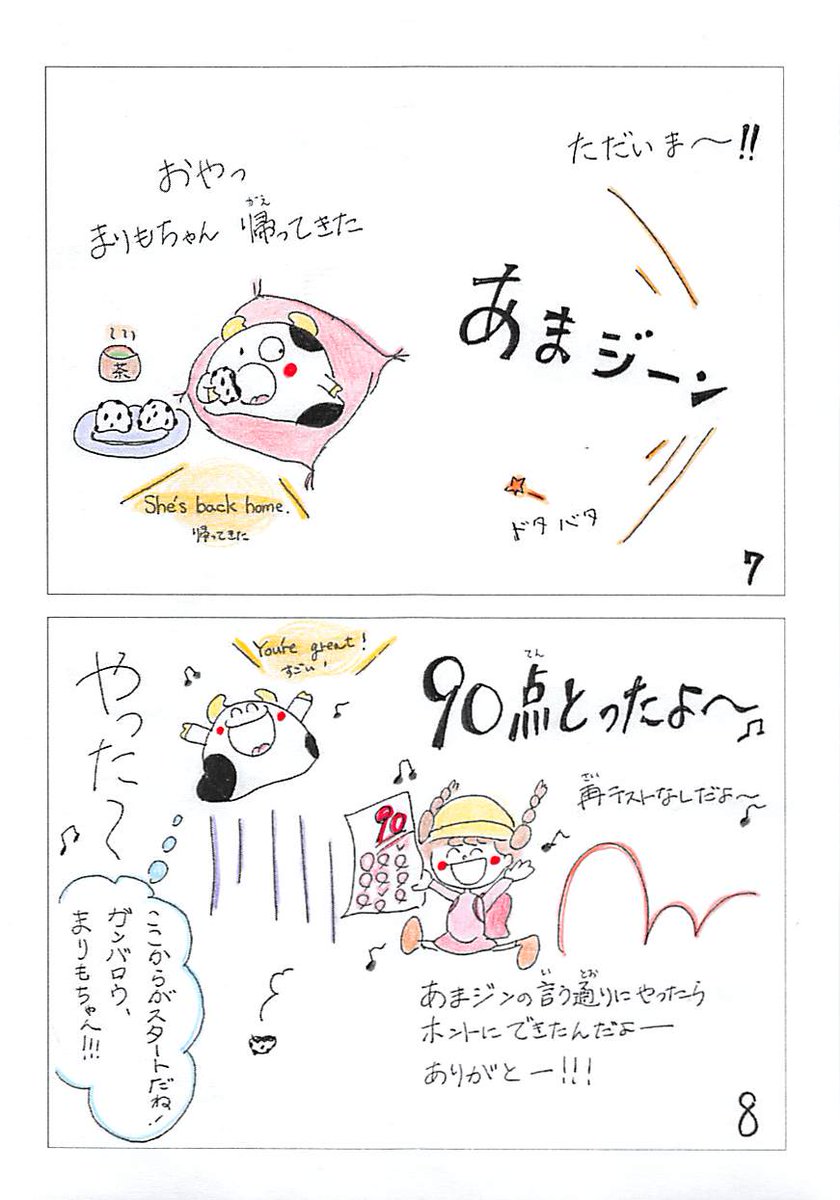 ただいま〜!!
あまジーン
ドタバタ
おやっ
まりもちゃん 帰ってきた
がえ
茶
She's back home.
帰ってきた
7
90点とったよ〜
てん
再テストなしだよ〜
さい
You're great!
すごい!
やった〜
90
あまジンの言う通りにやったら
い とお
ホントにできたんだよー
ありがとー!!!
ここからがスタートだね!
ガンバロウ、
まりもちゃん!!!
8